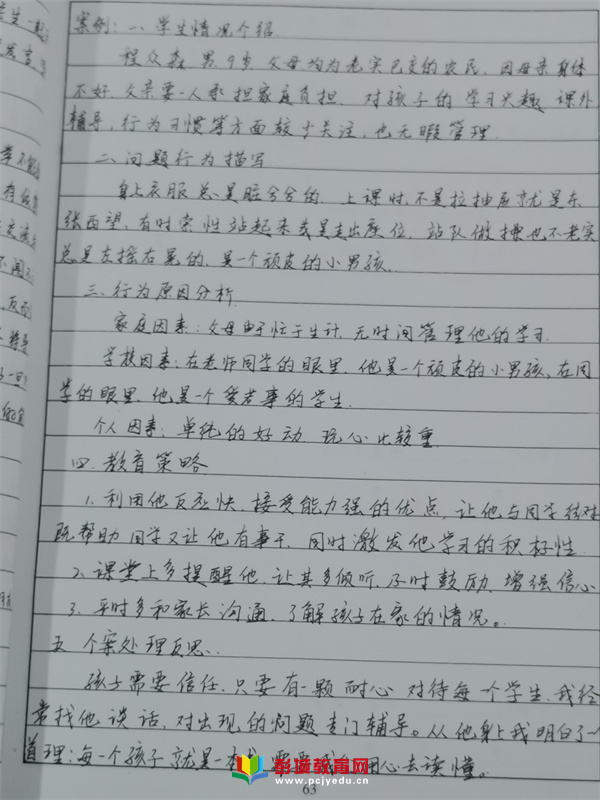 案例：一、学生情况介绍
程众森，男，9岁，父母均为老实巴交的农民，因母亲身体
不好，父亲要一人承担家庭负担，对孩子的学习兴趣、课外
辅导，行为习惯等方面较少关注，也无暇管理
二、问题行为描写
身上衣服总是脏兮兮的，上课时，不是拉抽屉就是东
张西望，有时索性站起来或是走出座位，站队做操也不老实
总是左摇右晃的，是一个顽皮的小男孩。
三、行为原因分析
家庭因素：父母由于忙于生计，无时间管理他的学习
学校因素：在老师同学的眼里，他是一个顽皮的小男孩，在同
学的眼里，他是一个爱惹事的学生
个人因素：单纯的好动，玩心比较重
四、教育策略
1、利用他反应快，接受能力强的优点，让他与同学结对
既帮助同学又让他有事干，同时激发他学习的积极性
2、课堂上多提醒他，让其多倾听，及时鼓励，增强信心
3、平时多和家长沟通，了解孩子在家的情况。
五、个案处理反思
孩子需要信任，只要有一颗耐心对待每一个学生，我经
常找他谈话，对出现的问题专门辅导。从他身上我明白了一
道理：每一个孩子就是一本 需要 心去读懂。
彭城教育网
www.pcjyedu.cn
63